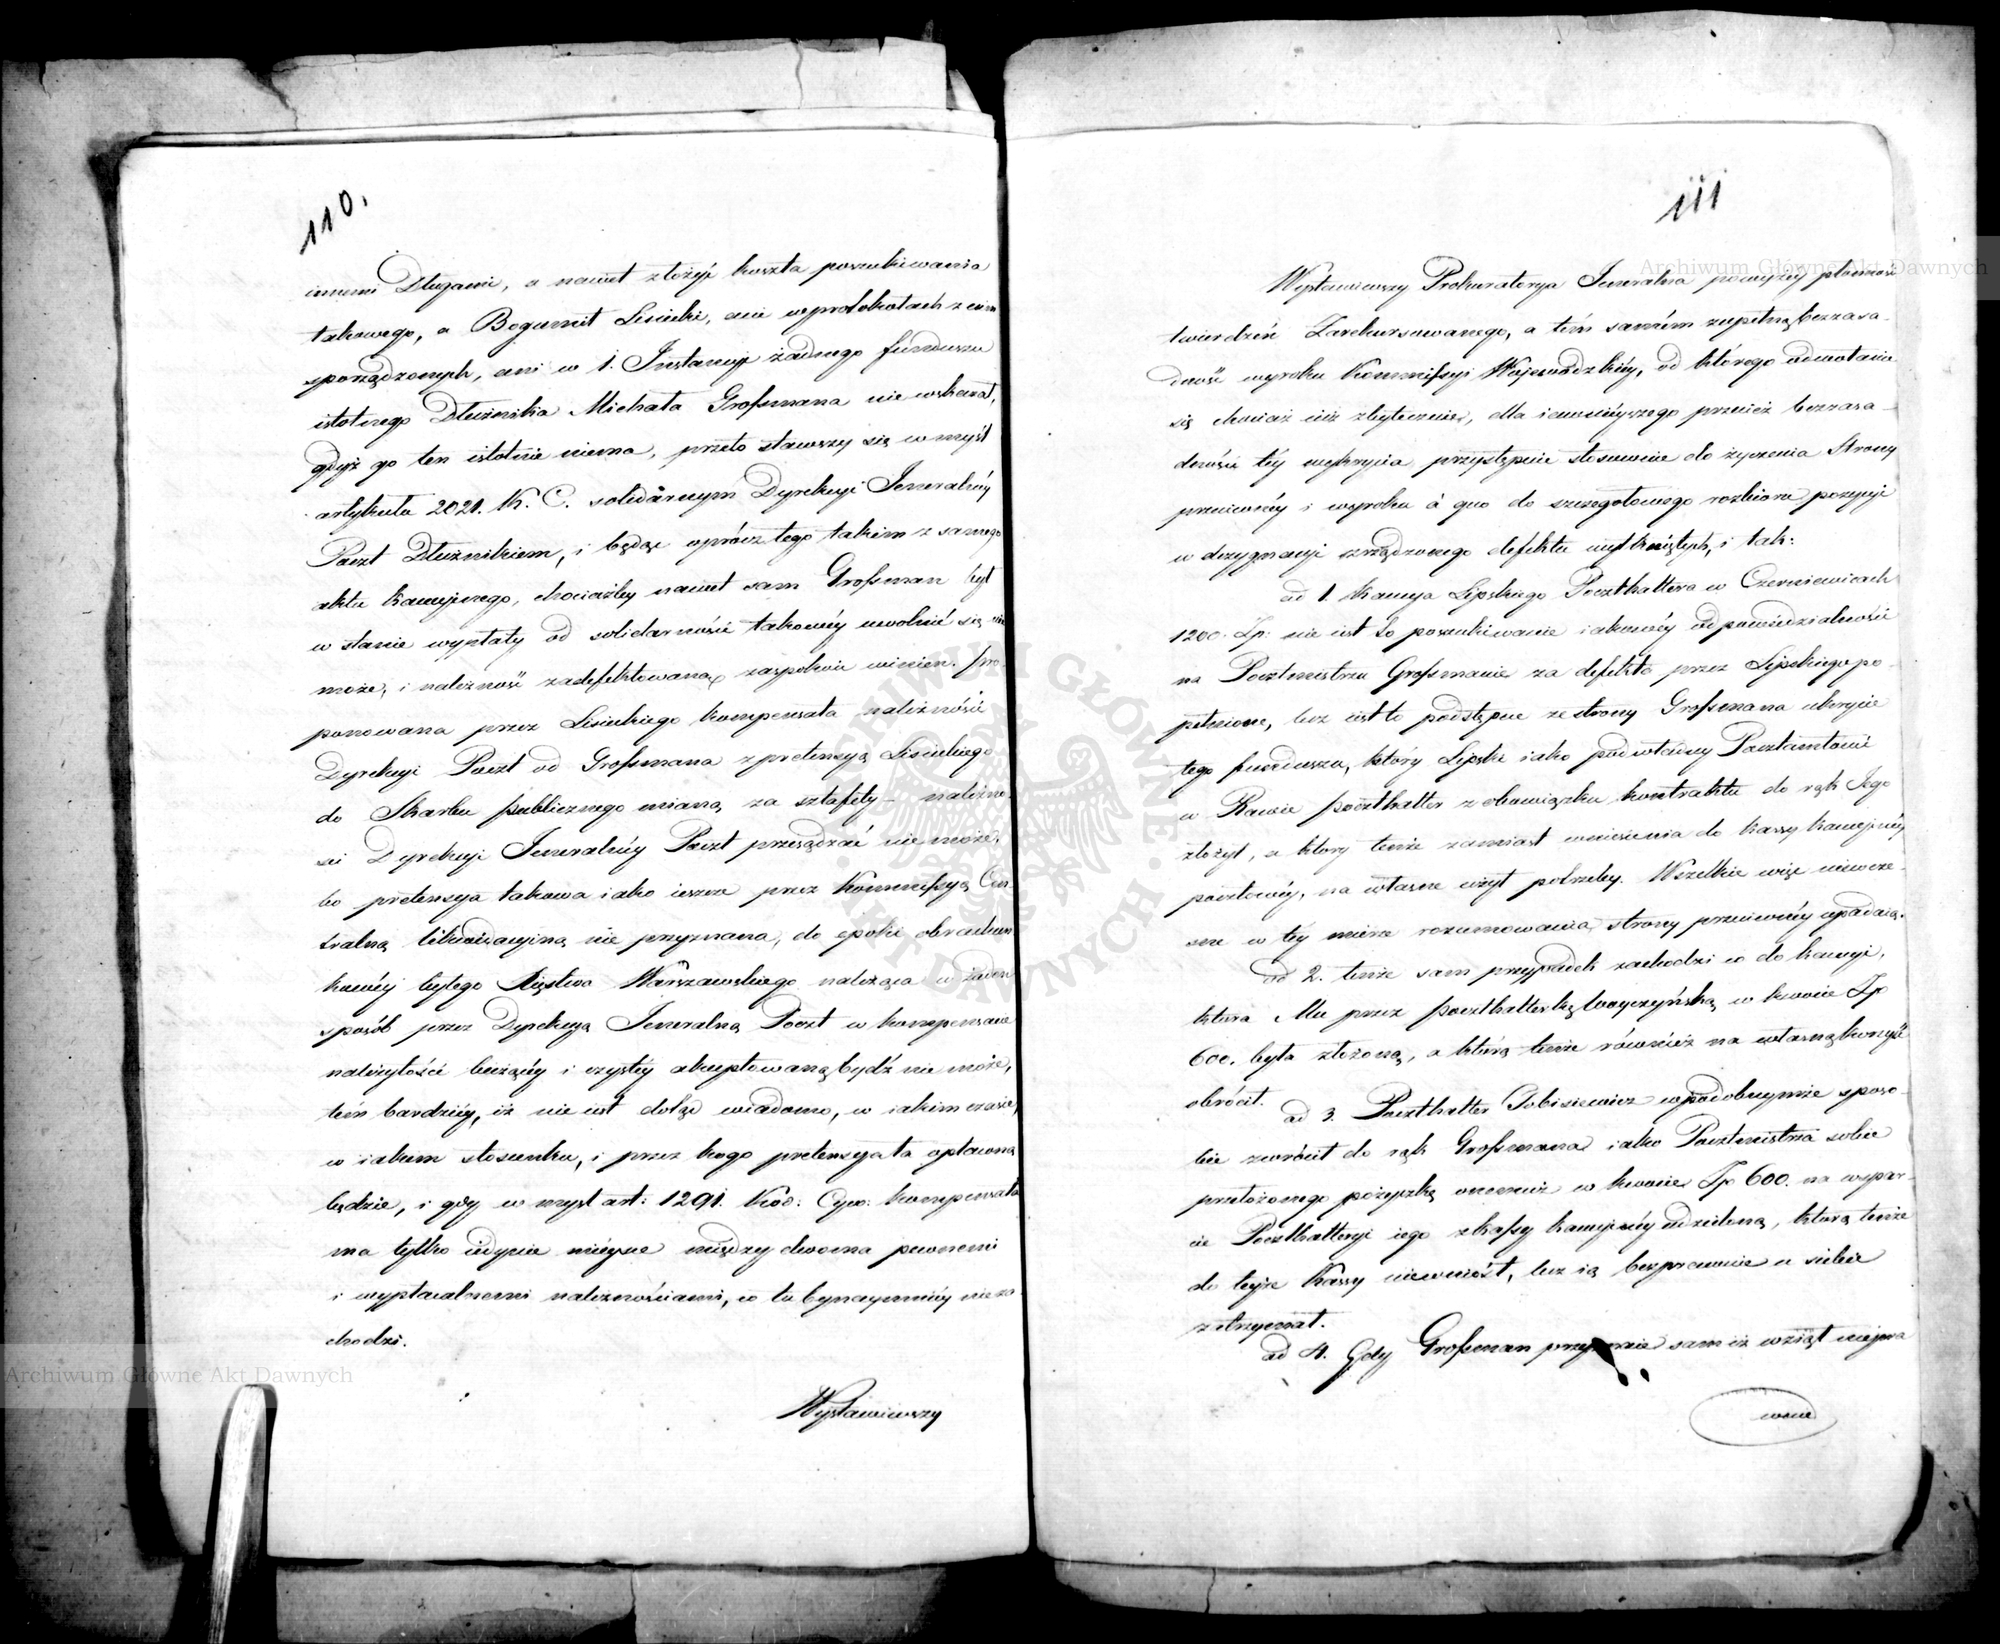 110.
innemi Długami, a nawet złożyć koszta poszukiwania
takowego, a Bogumił Lisiecki, ani w protokołach z nim
sporządzonych, ani w 1. Instancyi żadnego funduszu
istotnego Dłużnika Michała Großmana nie wskazał,
gdyż go ten istotnie niema, przeto stawszy się w myśl
artykułu 2021. K. C. solidarnym Dyrekcyi Jeneralnéy
Poczt Dłużnikiem, i będąc oprócz tego takim z samego
aktu kaucyinego, chociażby nawet sam Großman był
w stanie wypłaty od solidarności takowéy uwolnić się nie
może, i należność zadefektowaną zaspokoić winien. Pro-
ponowana przez Lisieckiego kompensata należności
Dyrekcyi Poczt od Großmana z pretensyą Lisieckiego
do Skarbu publicznego mianą za sztafety – należno-
ści Dyrekcyi Jeneralnéy Poczt przesądzać nie może,
bo pretensya takowa iako ieszcze przez Kommissyą Cen-
tralną likwidacyiną nie przyznana, do epoki obrachun
kowéy byłego Xięstwa Warszawskiego należąca w żaden
sposób przez Dyrekcyą Jeneralną Poczt w kompensacie
należytości bieżącéy i czystéy akceptowaną bydź nie może,
tém bardziéy, iż nie iest dotąd wiadomo, w iakim czasie,
w iakim stosunku, i przez kogo pretensya ta opłaconą
będzie, i gdy w myśl art: 1291. Kod: Cyw: kompensata
ma tylko iedynie mieysce między dwoma pewnemi
i wypłacalnemi należnościami, co tu bynaymniéy nie za
chodzi.
Wystawiwszy
111
Wystawiwszy Prokuratorya Jeneralna powyżéy płonność
twierdzeń Zarekursowanego, a tém samém zupełną bezzasa-
dność wyroku Kommissyi Wojewódzkiéy, od którego odwołania
się chociaż iuż zbytecznie, dla iaśnieyszego przecież bezzasa-
dności téy wykrycia przystępuie stosownie do życzenia Strony
przeciwnéy i wyroku à quo do szczegółowego rozbioru pozycyi
w dezygnacyi zrządzonego defektu wytkniętych, i tak:
ad 1. Kaucya Lipskiego Poczthaltera w Czerniewicach
1200. Zp: nie iest to poszukiwanie iakowéy odpowiedzialności
na Pocztmistrzu Großmanie za defekta przez Lipskiego po-
pełnione, lecz iest to podstępne ze strony Großmana ukrycie
tego funduszu, który Lipski iako podwładny Pocztamtowi
w Rawie poczthalter z obowiązku kontraktu do rąk Jego
złożył, a który tenże zamiast wniesienia do kassy kaucyinéy
pocztowéy, na własne użył potrzeby. Wszelkie więc niewcze-
sne w téy mierze rozumowania strony przeciwnéy upadaią.
ad 2. tenże sam przypadek zachodzi co do kaucyi,
która Mu przez poczthalterkę w kwocie Zp
600. była złożoną, a którą tenże również na własną korzyść
obrócił.
ad 3. Poczthalter Tobisiewicz w podobnymże sposo-
bie zwrócił do rąk Großmana iako Pocztmistrza sobie
przełożonego pożyczkę w kwocie Zp 600. na wspar-
cie Poczthalteryi iego z kassy kaucyinéy udzieloną, którą tenże
do teyże Kassy niewniósł, lecz ią bezprawnie u siebie
zatrzymał.
ad 4. Gdy Großman przyznaie sam iż wziął